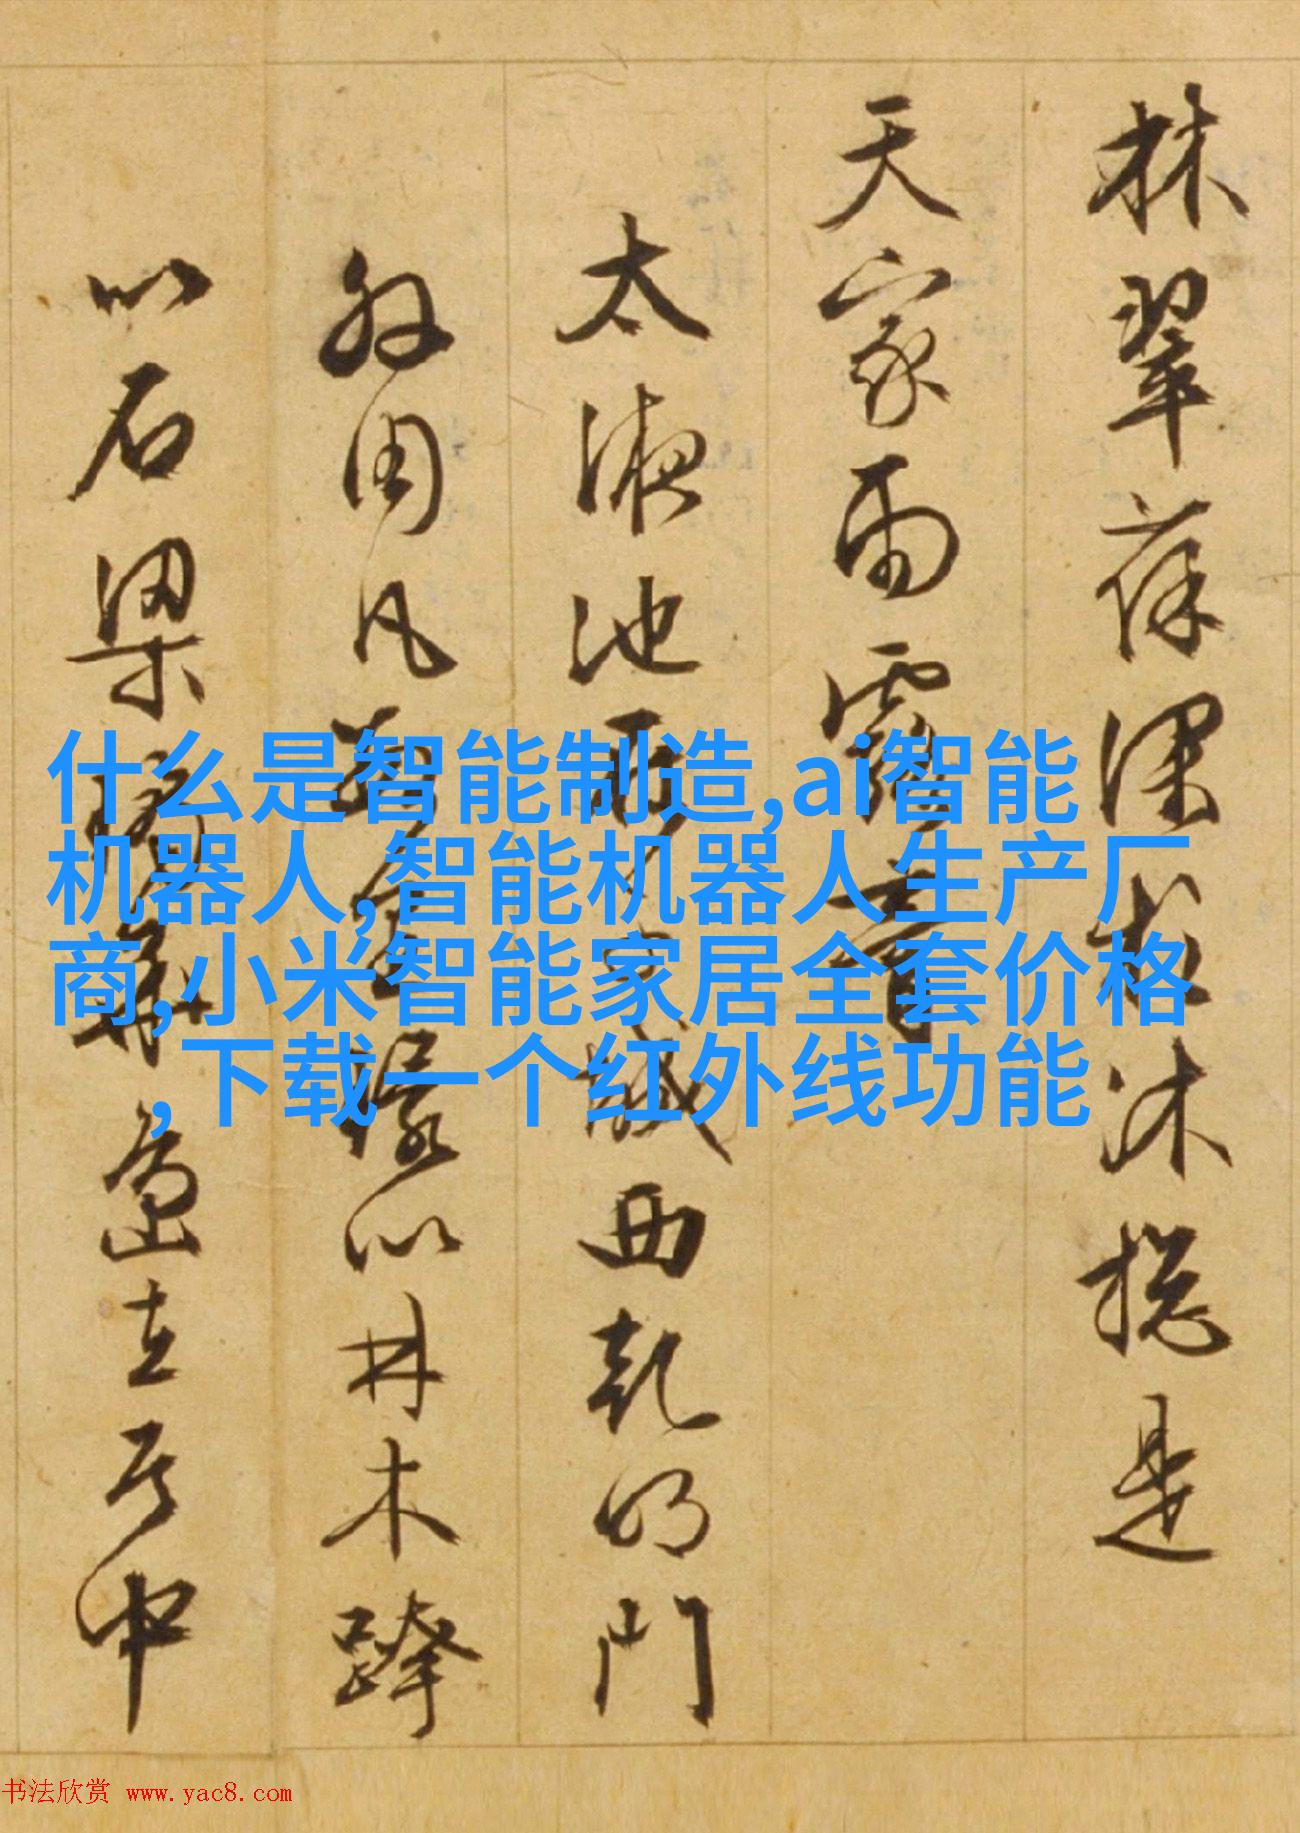 林翠葆深松沐挽是
天家雨露膏
太液池
西乾明門
外周凡
以井木跨
以石梁
島立居中
什么是智能制造,ai智能
机器人,智能机器人生产厂
商,小米智能家居全套价格
,下载一个红外线功能
书法欣赏 www.yac8.com